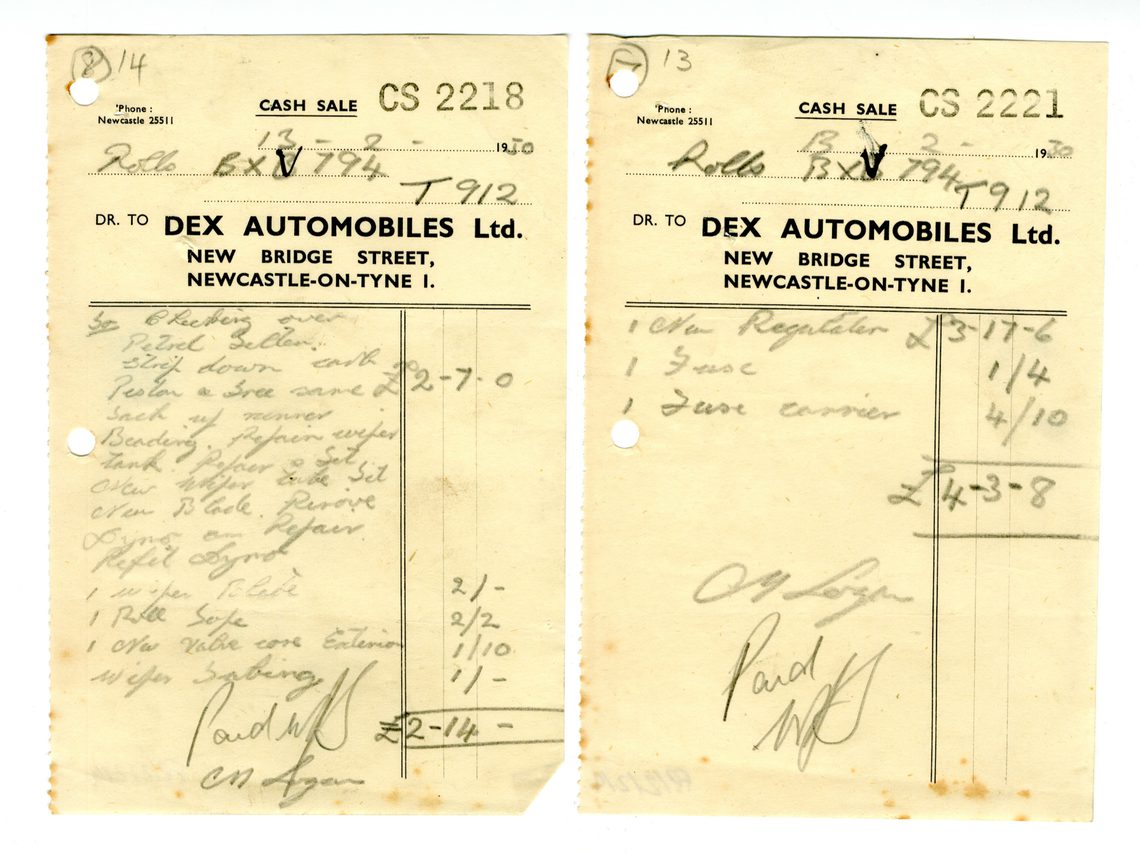 (8) 14
CASH SALE CS 2218
'Phone :
Newcastle 25511
13 - 2 - 1950
Rolls BXV 794
T912
DR. TO DEX AUTOMOBILES Ltd.
NEW BRIDGE STREET,
NEWCASTLE-ON-TYNE 1.
To Checking over
Petrol
Strip down carb
Piston & free same £2-7-0
Jack up
Beading. Repair wiper
tank. Repair & Set
New Wiper tube Set
New Blade. Remove
Dyno Repair
Refit Dyno
1 wiper Blade 2/-
1 Roll Tape 2/2
1 New Valve core Extension 1/10
wiper Tubing 1/-
Paid
£2-14-
Logan
13
CASH SALE CS 2221
'Phone :
Newcastle 25511
13 2 - 1950
Rolls BXV 794
T912
DR. TO DEX AUTOMOBILES Ltd.
NEW BRIDGE STREET,
NEWCASTLE-ON-TYNE 1.
1 New Regulator £3-17-6
1 Fuse 1/4
1 Fuse carrier 4/10
£4-3-8
Logan
Paid